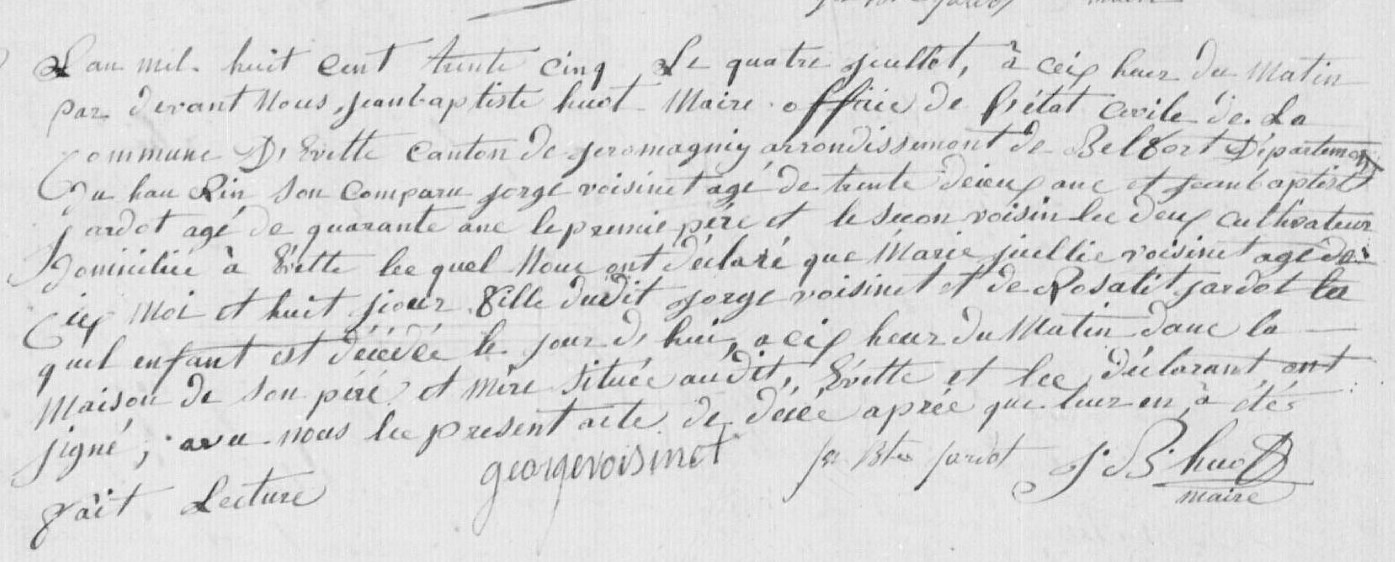 L'an mil huit cent trente cinq Le quatre juillet, à ceix heur du Matin
par devant Nous, jeanbaptiste huot Maire officie de l'état Civile de La
Commune D'Evette Canton de jeromagniy arrondissement de Belfort Département
Du hau Rin son Comparu jorge voisinet agé de trente deieux anc et jeanbaptist
jardot agé de quarante anc le premie père et le secon voisin lec deux cultivateur
Domicilié à Evette lec quel Nouc ont déclaré que Marie juillie voisinet agé de
Ciex Moi et huit jiour fille dudit jorge voisinet et de Rosalit jardot la
quel enfant est décédée le jour d'hui, a ceix heur du Matin danc la
Maison de son père et Mère située audit, Evette et lec déclarant ont
signé, avec nous lec present acte de décée aprée que leur en à étés
fait Lecture georgevoisinet jn Bte jardot J. B. huot
maire